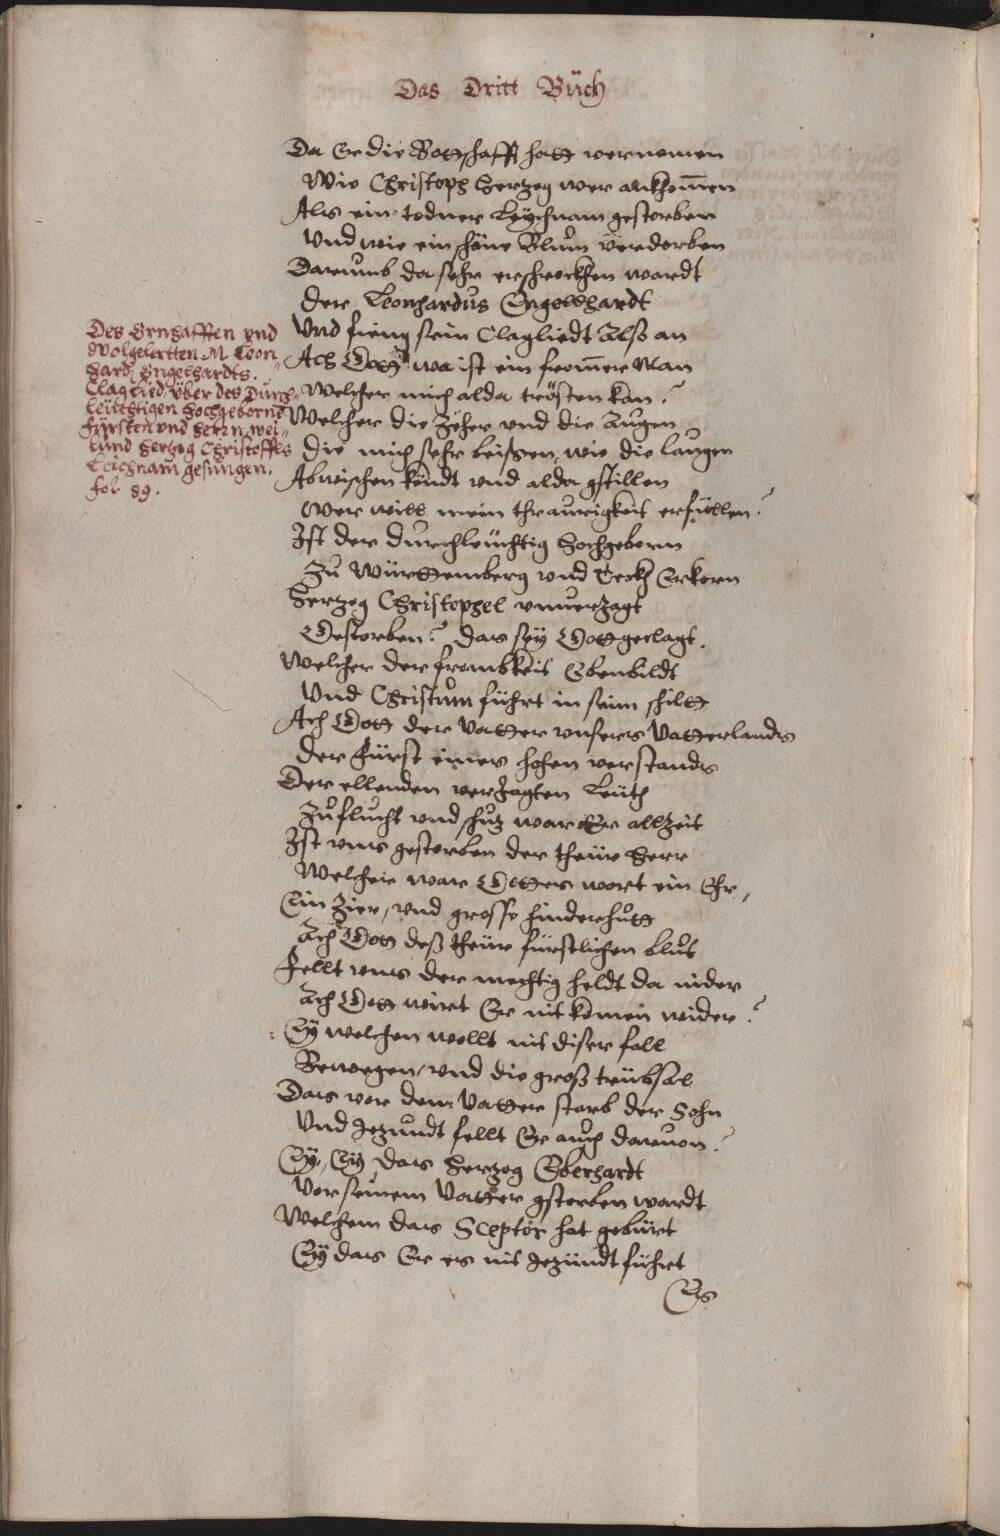 Das Dritt Büch
Da Er die Bottschafft hatt vernomen
Wie Christoph Hertzog wer ankhom̄en
Als ein todner Leychnam gestorben
Und wie ein schöne Blům verdorben
Darumb da sehr erschrockhen wardt
Der Leonhardus Engellhardt
Und fieng sein Clagliedt also an
Ach Gott wa ist ein from̄er Man
Welcher mich alda trösten kan?
Welcher die Zeher und die Augen
Die mich sehr beissen, wie die laugen
Abwischen kündt und alda gstillen
Wer will mein thraurigkeit erfüllen?
Ist der durchleüchtig Hochgeborn
Zu Württemberg und Teckh Erkorn
Hertzog Christophel unverzagt
Gestorben? das sey Gott geclagt.
Welcher der frombkeit Ebenbildt
Und Christum führt in seim schilt
Ach Gott der Vatter unsers Vatterlands
Der Fürst eines hohen verstands
Der ellenden verzagten Leüth
Zůflucht und schutz war Er allzeit
Ist uns gestorben der theür Herr
Welcher war Gottes wort ein Ehr,
Ein Zier, und grosse hinderhůtt
Ach Gott deß theür fürstlichen blůt
Fellt uns der mechtig heldt da nider
Ach Gott wirt Er nit komen wider?
Ey welchen wollt nit diser fall
Bewegen, und die groß trübsal
Das vor dem Vatter starb der Sohn
Und jezundt fellt Er auch darvon?
Ey, Ey das Hertzog Eberhardt
Vor seinem Vatter gstorben wardt
Welchem das Sceptor hat gebürt
Ey das Er es nit jezündt führt
Es
Des Ernhafften und
Wolgelertten M. Leon-
hard, Engelhardts.
Claglied, über des Durch-
leüchtigen Hochgeborne
Fürsten und Herrn, wei-
lund Hertzog Christoffles
Leichnam gesungen.
fol. 89.